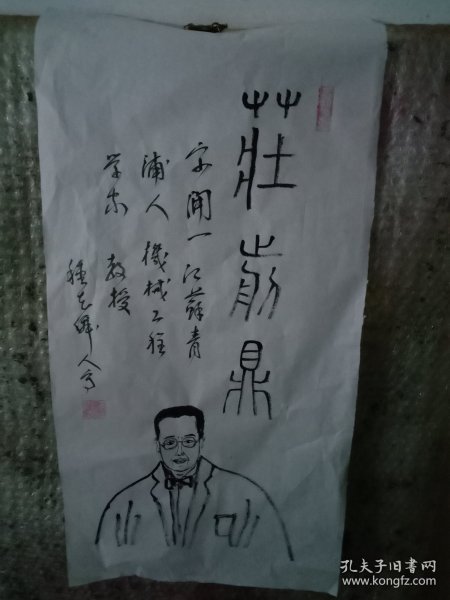 莊前鼎
字開一江蘇青
浦人 機械工程
学家 教授
孔夫子旧书网
www.kongfz.com